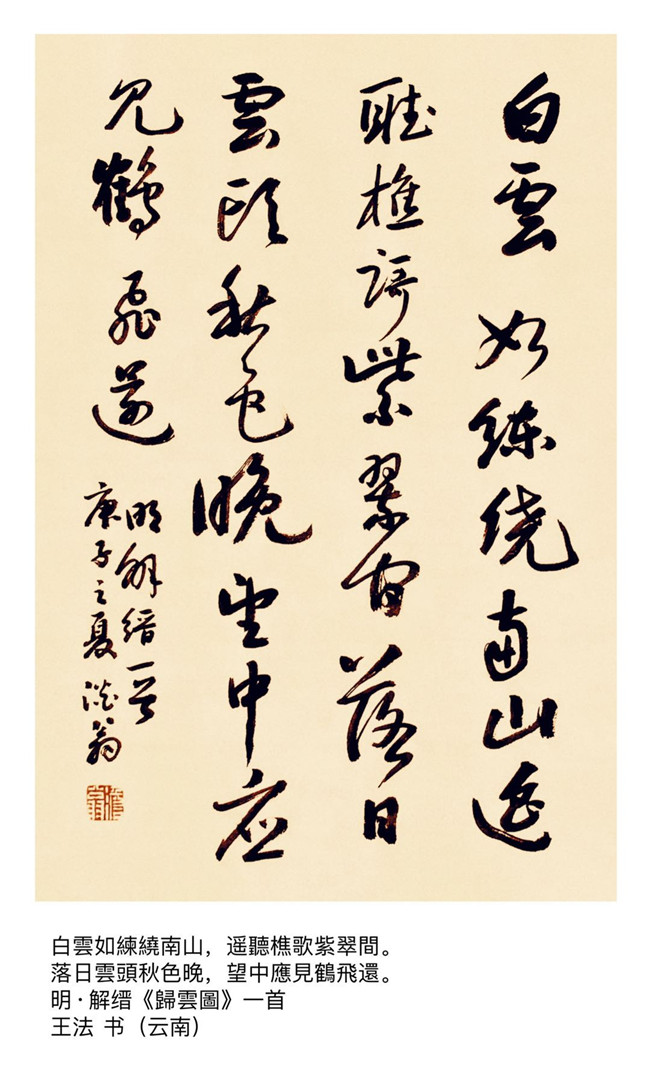 白雲如練繞南山遥
聽樵歌紫翠間落日
雲頭秋色晚望中應
見鶴飛還
明解縉一首
庚子之夏 澹翁
白雲如練繞南山，遥聽樵歌紫翠間。
落日雲頭秋色晚，望中應見鶴飛還。
明·解缙《歸雲圖》一首
王法 书（云南）